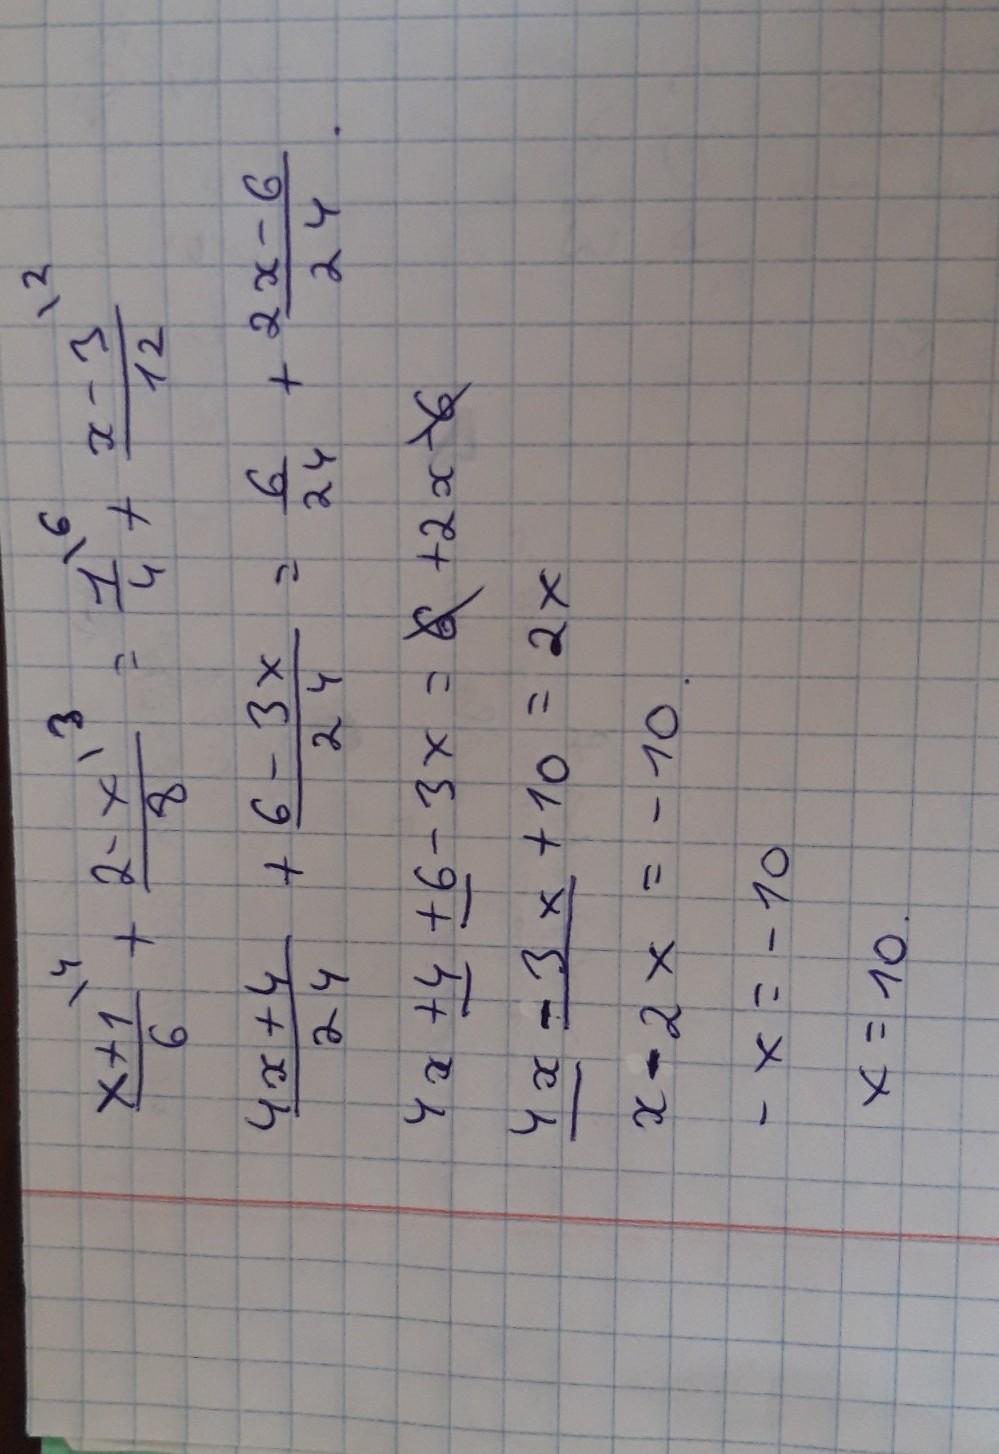 \frac{x+1}{6}^{\4} + \frac{2-x}{8}^{\3} = \frac{1}{4}^{\6} + \frac{x-3}{12}^{\2}
\frac{4x+4}{24} + \frac{6-3x}{24} = \frac{6}{24} + \frac{2x-6}{24}.
4x +4 +6 - 3x = 6 +2x -6
4x - 3x +10 = 2x
x - 2x = -10.
- x = - 10
x = 10.